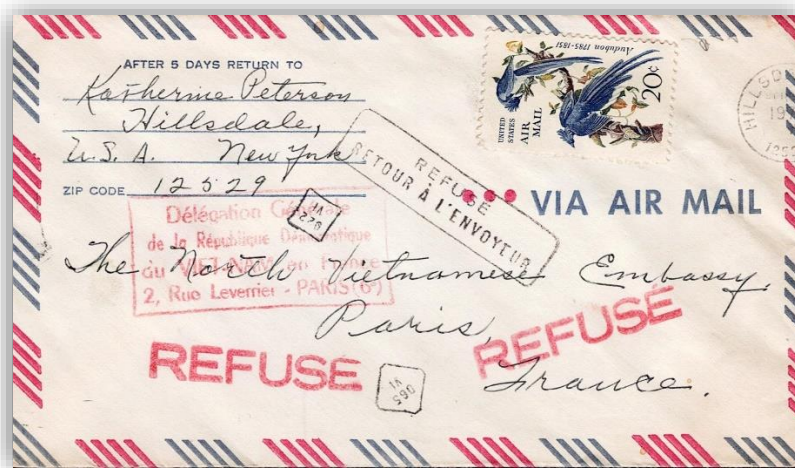 AFTER 5 DAYS RETURN TO
Katherine Peterson
Hillsdale,
U.S.A. New York
ZIP CODE 12529
Audubon 1785-1851
UNITED STATES
AIR MAIL
20¢
HILLSD
19
1252
REFUSÉ
RETOUR À L'ENVOYEUR
VIA AIR MAIL
Délégation Générale
de la République Démocratique
du VIET-NAM en France
2, Rue Leverrier - PARIS (6e)
The North Vietnamese Embassy,
Paris,
France.
REFUSE
REFUSÉ
065
VI